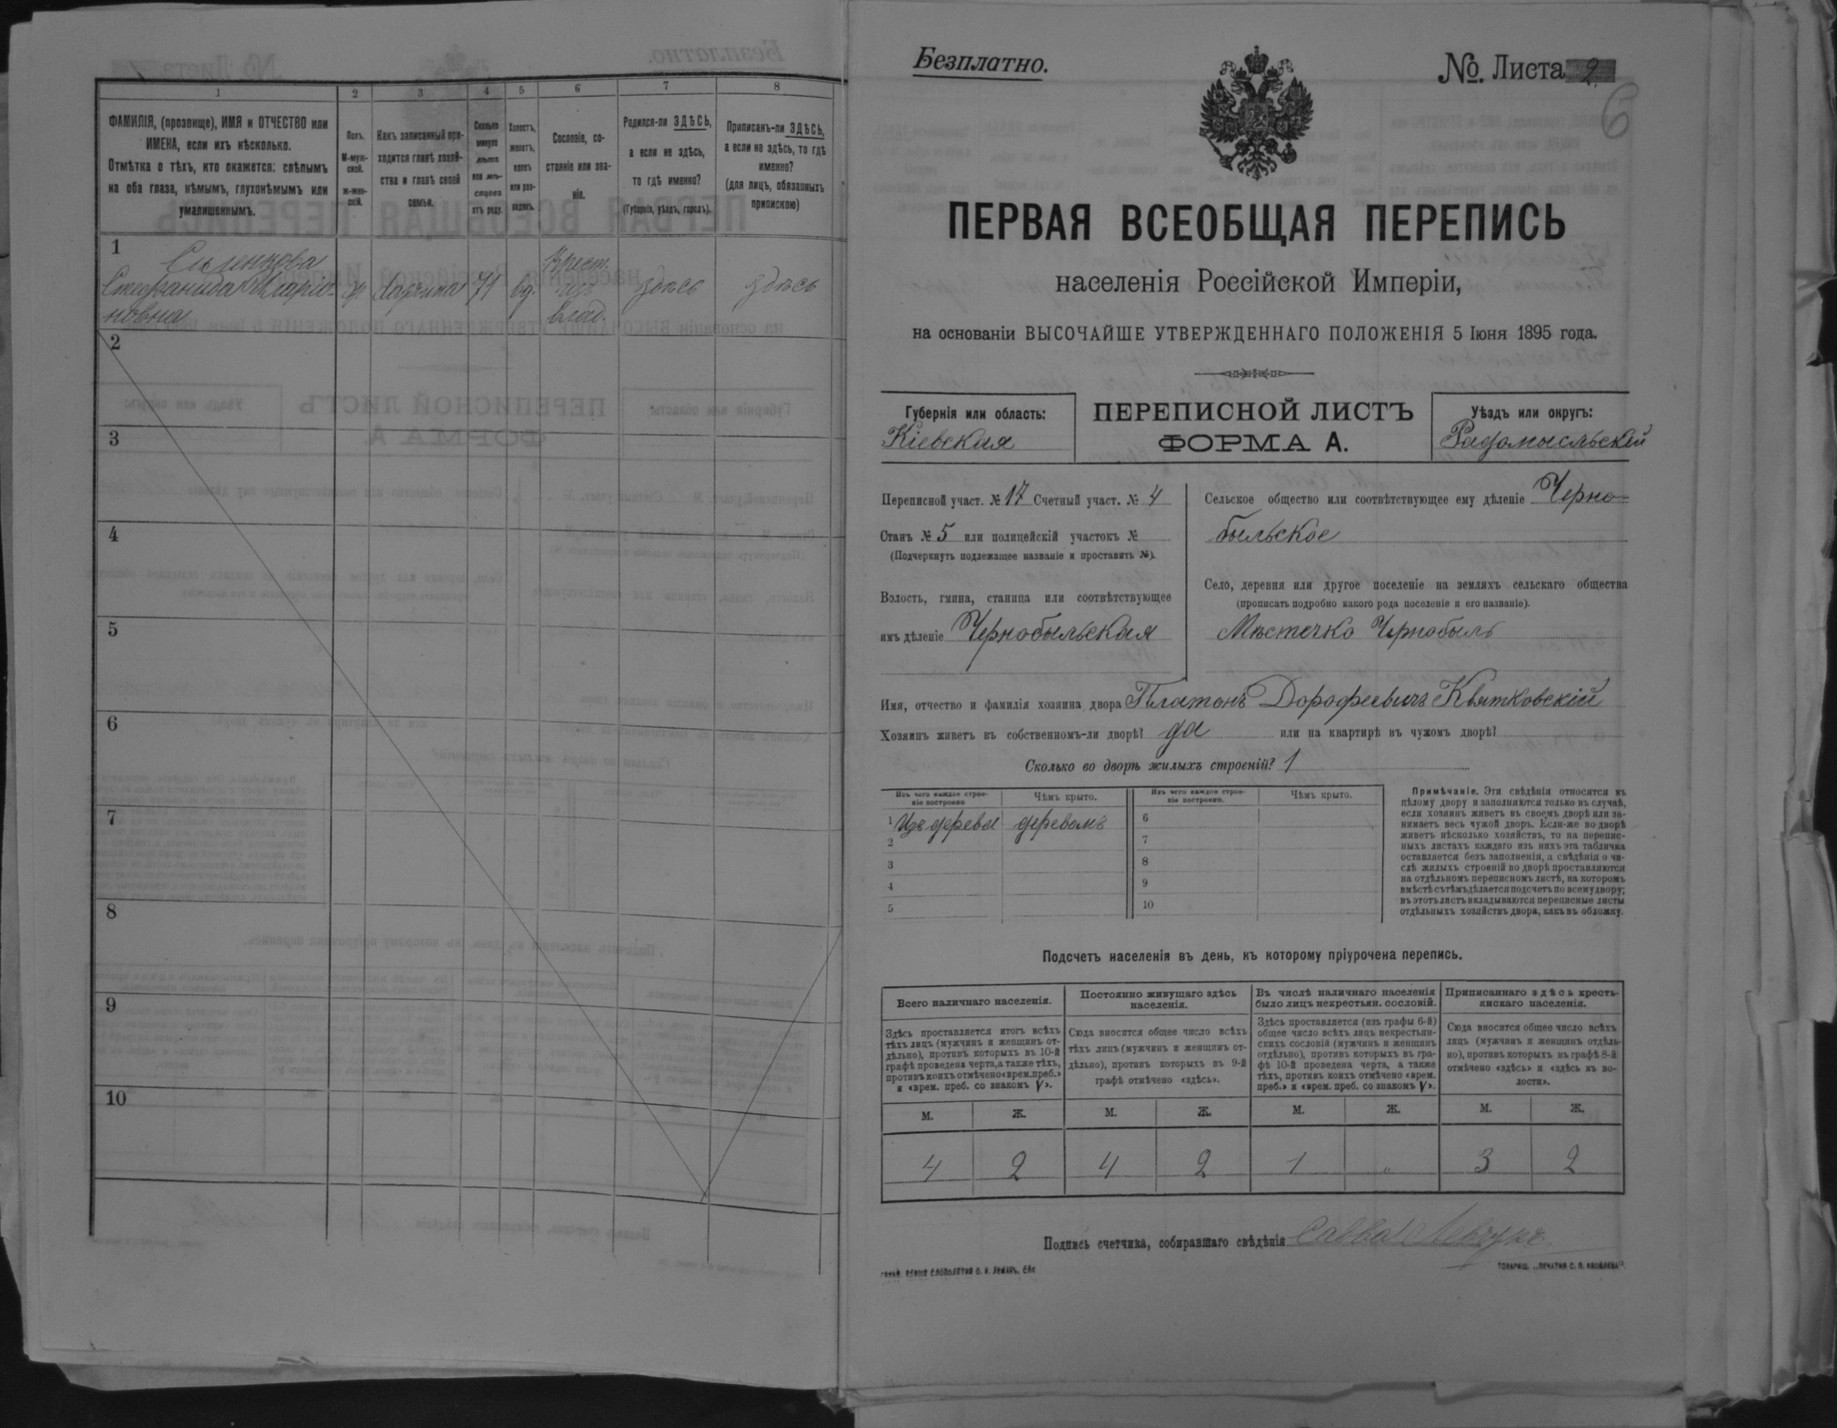 1 2 3 4 5 6 7 8
ФАМИЛІЯ, (прозвище), ИМЯ и ОТЧЕСТВО или
ИМЕНА, если ихъ нѣсколько.
Отмѣтка о тѣхъ, кто окажется: слѣпымъ
на оба глаза, нѣмымъ, глухонѣмымъ или
умалишеннымъ.
Полъ.
М-муж-
ской.
Ж-жен-
скій.
Какъ записанный при-
ходится главѣ хозяй-
ства и главѣ своей
семьи.
Сколько
минуло
лѣтъ
или мѣ-
сяцевъ
отъ роду.
Холостъ,
женатъ,
вдовъ
или раз-
веденъ.
Сословіе, со-
стояніе или зва-
ніе.
Родился-ли ЗДѢСЬ,
а если не здѣсь,
то гдѣ именно?
(Губернія, уѣздъ, городъ).
Приписанъ-ли ЗДѢСЬ,
а если не здѣсь, то гдѣ
именно?
(для лицъ, обязанныхъ
припискою)
1
Стефанида Марія-
новна
71 вд. здѣсь здѣсь
Крест.
изъ
влад.
2
3
4
5
6
7
8
9
10
Безплатно.
№ Листа 2
6
ПЕРВАЯ ВСЕОБЩАЯ ПЕРЕПИСЬ
населенія Россійской Имперіи,
на основаніи ВЫСОЧАЙШЕ УТВЕРЖДЕННАГО ПОЛОЖЕНІЯ 5 Іюня 1895 года.
Губернія или область:
Кіевская
ПЕРЕПИСНОЙ ЛИСТЪ
ФОРМА А.
Уѣздъ или округъ:
Радомысльскій
Переписной участ. № 17 Счетный участ. № 4
Станъ № 5 или полицейскій участокъ №
(Подчеркнуть подлежащее названіе и проставить №).
Волость, гмина, станица или соотвѣтствующее
имъ дѣленіе Чернобыльская
Сельское общество или соотвѣтствующее ему дѣленіе Черно-
быльское
Село, деревня или другое поселеніе на земляхъ сельскаго общества
(прописать подробно какого рода поселеніе и его названіе).
Мѣстечко Чернобыль
Имя, отчество и фамилія хозяина двора Платонъ Дорофеевичъ Квятковскій
Хозяинъ живетъ въ собственномъ-ли дворѣ? да или на квартирѣ въ чужомъ дворѣ?
Сколько во дворѣ жилыхъ строеній? 1
Изъ чего каждое строе-
ніе построено
Чѣмъ крыто.
Изъ чего каждое строе-
ніе построено.
Чѣмъ крыто.
1 Изъ дерева деревомъ 6
2 7
3 8
4 9
5 10
Примѣчаніе. Эти свѣдѣнія относятся къ
цѣлому двору и заполняются только въ случаѣ,
если хозяинъ живетъ въ своемъ дворѣ или за-
нимаетъ весь чужой дворъ. Если-же во дворѣ
живетъ нѣсколько хозяйствъ, то на перепис-
ныхъ листахъ каждаго изъ нихъ эта табличка
оставляется безъ заполненія, а свѣдѣнія о чи-
слѣ жилыхъ строеній во дворѣ проставляются
на отдѣльномъ переписномъ листѣ, на которомъ
вмѣстѣ съ тѣмъ дѣлается подсчетъ по всему двору;
въ этотъ листъ вкладываются переписные листы
отдѣльныхъ хозяйствъ двора, какъ въ обложку.
Подсчетъ населенія въ день, къ которому пріурочена перепись.
Всего наличнаго населенія.
Здѣсь проставляется итогъ всѣхъ
тѣхъ лицъ (мужчинъ и женщинъ от-
дѣльно), противъ которыхъ въ 10-й
графѣ проведена черта, а также тѣхъ,
противъ коихъ отмѣчено «врем. преб.»
и «врем. преб. со знакомъ V».
Постоянно живущаго здѣсь
населенія.
Сюда вносится общее число всѣхъ
тѣхъ лицъ (мужчинъ и женщинъ от-
дѣльно), противъ которыхъ въ 9-й
графѣ отмѣчено «здѣсь».
Въ числѣ наличнаго населенія
было лицъ некрестьян. сословій.
Здѣсь проставляется (изъ графы 6-й)
общее число всѣхъ лицъ некрестьян-
скихъ сословій (мужчинъ и женщинъ
отдѣльно), противъ которыхъ въ гра-
фѣ 10-й проведена черта, а также
тѣхъ, противъ коихъ отмѣчено «врем.
преб.» и «врем. преб. со знакомъ V».
Приписаннаго здѣсь кресть-
янскаго населенія.
Сюда вносится общее число всѣхъ
лицъ (мужчинъ и женщинъ отдѣль-
но), противъ которыхъ въ графѣ 8-й
отмѣчено «здѣсь» и «здѣсь въ во-
лости».
М. Ж. М. Ж. М. Ж. М. Ж.
4 2 4 2 1 „ 3 2
Подпись счетчика, собиравшаго свѣдѣнія Савва Левчукъ